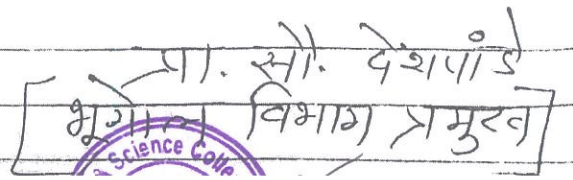 प्रा. सौ. देशपांडे
[भूगोल विभाग प्रमुख]
Science Colle